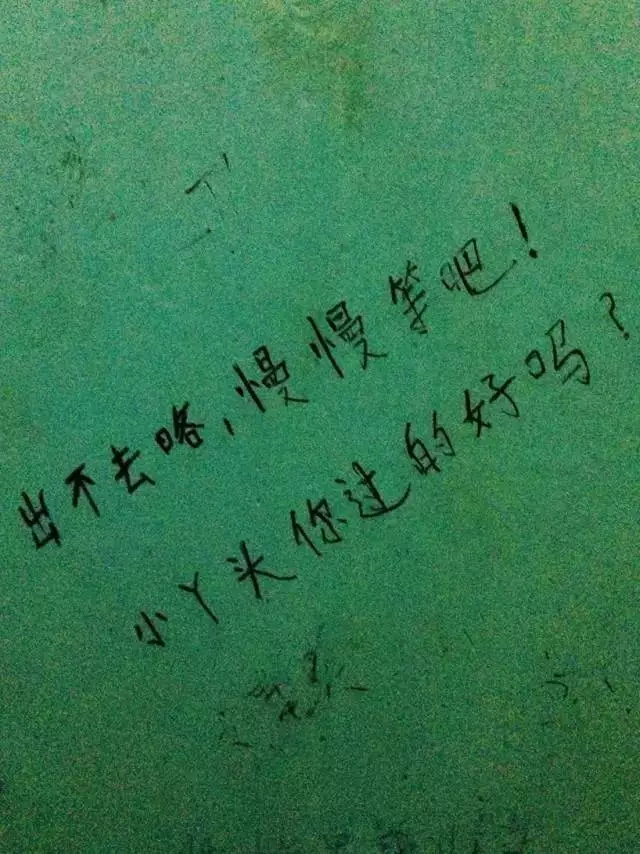 出不去咯，慢慢等吧！
小丫头你过的好吗？